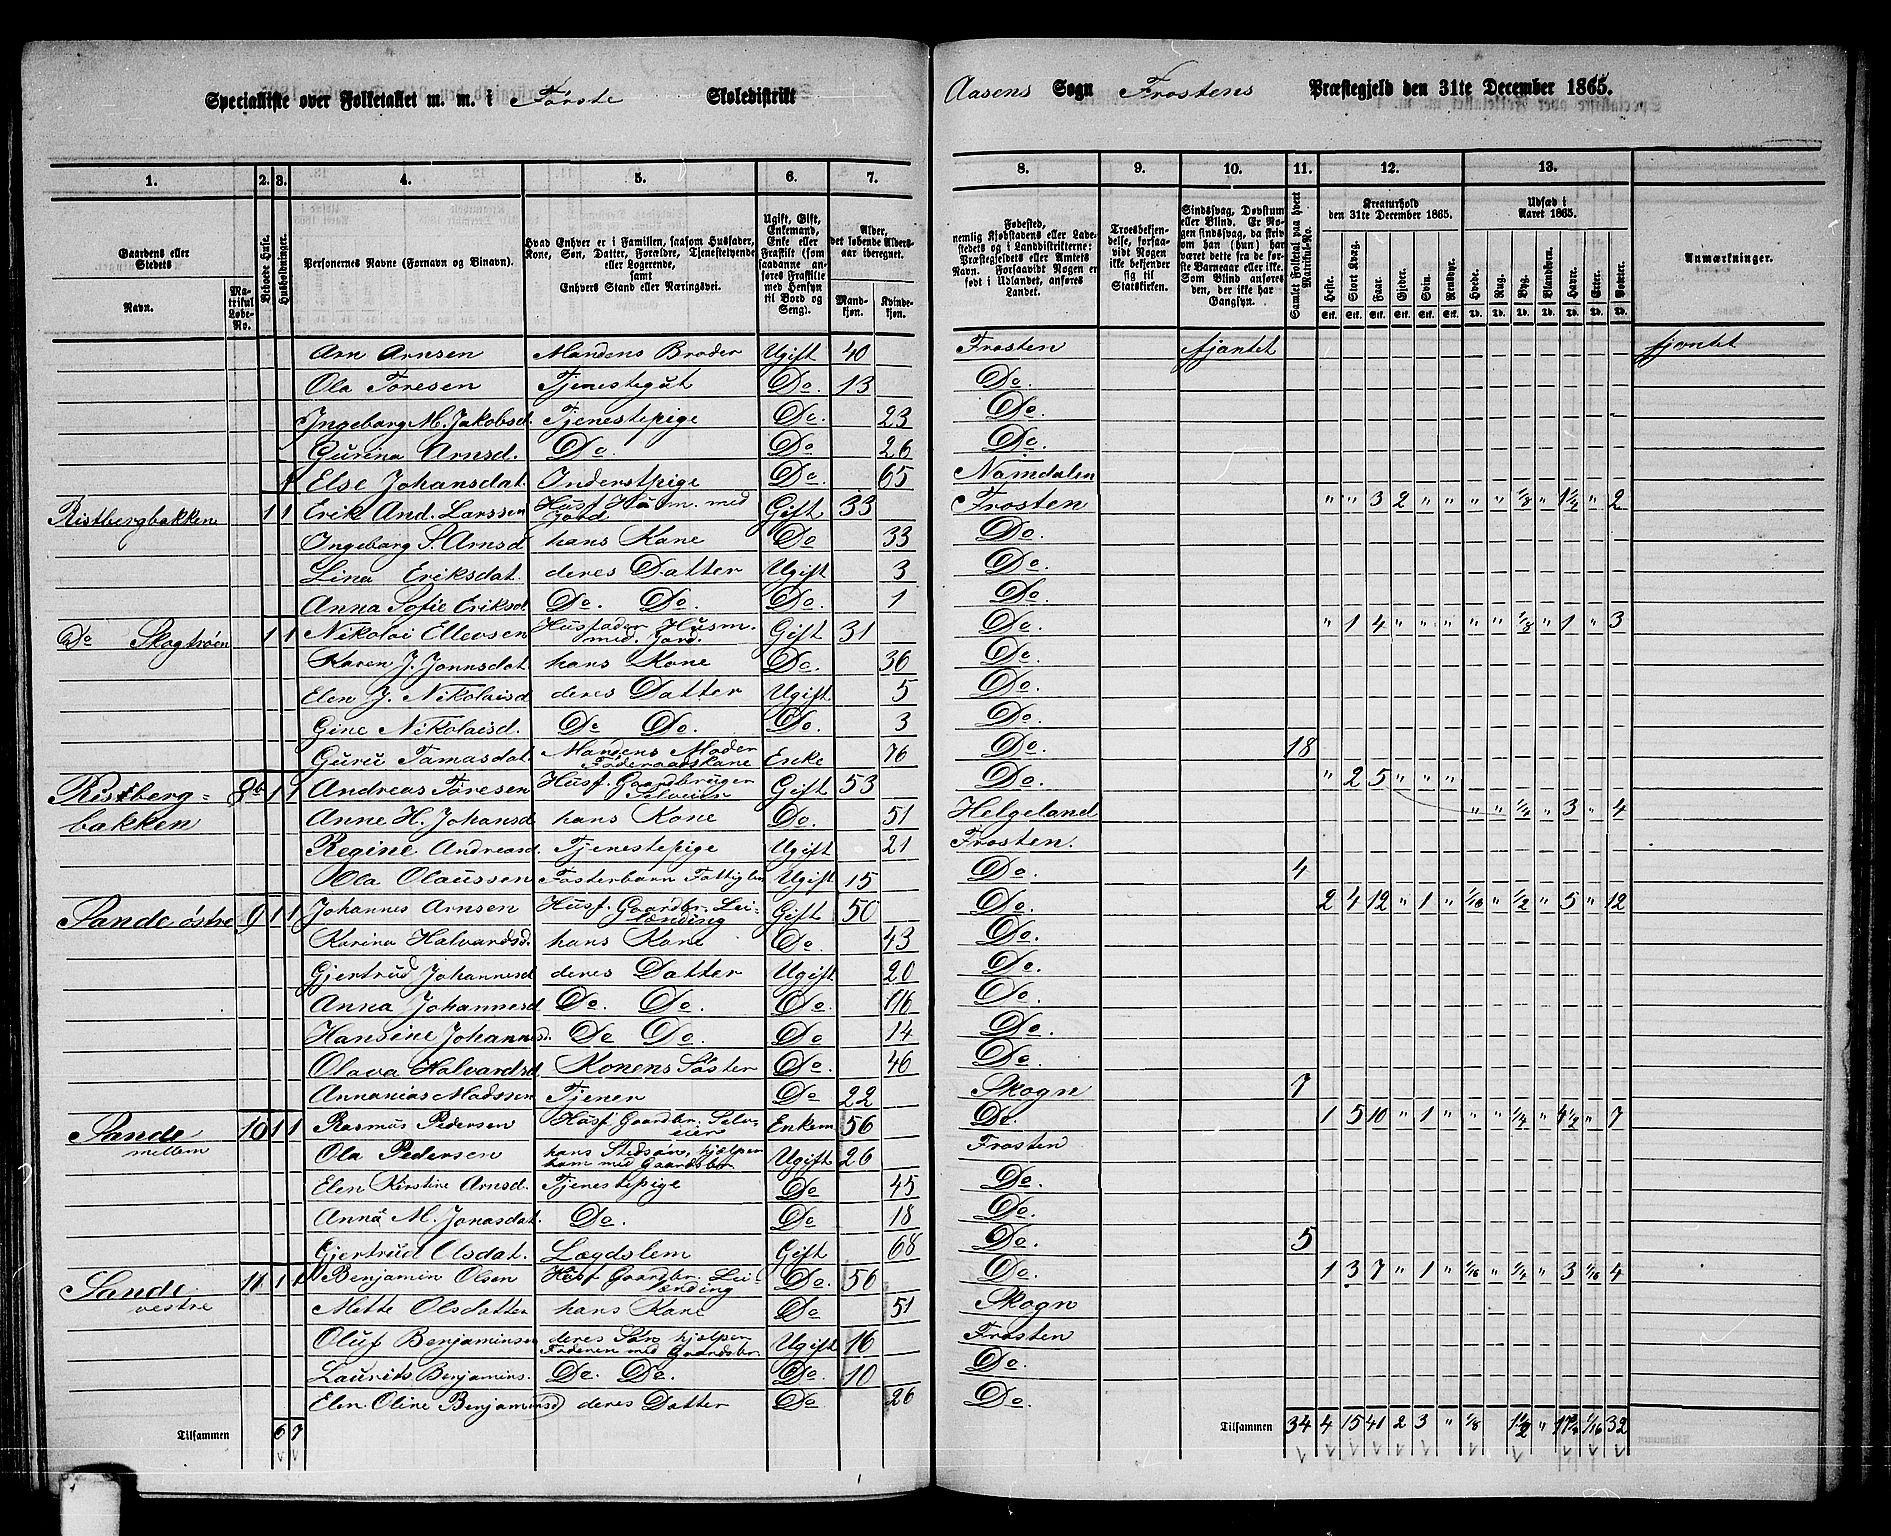 Specialliste over Folketallet m. m. i Første Skoledistrikt
Aasens Sogn Frostens Præstegjeld den 31te December 1865.
1. 2. 3. 4. 5. 6. 7. 8. 9. 10. 11. 12. 13.
Gaardens eller Stedets Navn. Matrikul Løbe-No.
Beboede Huse.
Husholdninger.
Personernes Navne (Fornavn og Binavn).
Hvad Enhver er i Familien, saasom Husfader, Kone, Søn, Datter, Forældre, Tjenestetyende eller Logerende, samt Enhvers Stand eller Næringsvei.
Ugift, Gift, Enkemand, Enke eller Fraskilt (som saadanne anføres Fraskilte med Hensyn til Bord og Seng).
Alder, det løbende Alders-aar iberegnet. Mandkjøn. Kvindekjøn.
Fødested, nemlig Kjøbstadens eller Ladestedets og i Landdistrikterne: Præstegjeldets eller Amtets Navn. Forsaavidt Nogen er født i Udlandet, anføres Landet.
Troesbekjendelse, forsaavidt Nogen ikke bekjender sig til Statskirken.
Sindssvag, Døvstum eller Blind. Er Nogen sindssvag, da skriv om han (hun) har været dette fra de første Barneaar eller ikke. Som Blind anføres den, der ikke har Gangsyn.
Samlet Folketal paa hvert Matrikul-No.
Kreaturhold den 31te December 1865.
Heste. Stort Kvæg. Faar. Gjeder. Svin. Rensdyr.
Udsæd i Aaret 1865.
Hvede. Rug. Byg. Blandkorn. Havre. Erter. Poteter.
Anmærkninger.
Arn Arnsen Mandens Broder Ugift 40 Frosten fjantet fjantet
Ola Toresen Tjenestegut Do. 13 Do.
Ingeborg M. Jakobsd. Tjenestepige Do. 23 Do.
Gurina Arnsd. Do. Do 26 Do.
1 Else Johansdat. Inderstpige Do 65 Namdalen
Ristbergbakken 1 1 Erik And. Larssen Husf. Husm. med Jord Gift 33 Frosten " " 3 2 " " " " 1/8 " 1 1/2 " 2
Ingeborg S. Arnsd hans Kone Do 33 Do.
Lina Eriksdat. deres Datter Ugift 3 Do.
Anna Sofie Eriksd Do. Do. Do. 1 Do.
Do Skogtrøen 1 1 Nikolai Ellevsen Husfader Husm. med Jord. Gift 31 Do. " 1 4 " " " " " 1/8 " 1 " 3
Karen J. Jonnsdat hans Kone Do. 36 Do.
Elen J. Nikolaisd deres Datter Ugift 5 Do.
Gine Nikolaisd. Do Do. Do. 3 Do.
Guru Tamasdat. Mandens Moder Føderaadskone Enke 76 Do. 18
Ristbergbakken 8b 1 1 Andreas Toresen Husf. Gaardbruger Selveier Gift 53 Do. " 2 5 " " "
Anne H. Johansd hans Kone Do. 51 Helgeland " " 1/4 " 3 " 4
Regine Andreasd. Tjenestepige Ugift 21 Frosten.
Ola Olaussen Fosterbarn Fattiglem Ugift 15 Do. 4
Sande østre 9 1 1 Johannes Arnsen Husf. Gaardbr. Leilænding Gift 50 Do. 2 4 12 " 1 " 1/16 " 1/2 " 5 " 12
Karina Halvardsd. hans Kone Do. 43 Do.
Gjertrud Johannesd deres Datter Ugift 20 Do.
Anna Johannesd Do. Do. Do. 16 Do.
Hansine Johannesd. Do Do. Do 14 Do.
Olava Halvardsd Konens Søster Do. 46 Do.
Annanias Madssen Tjener Do 22 Skogn 7
Sande mellem 10 1 1 Rasmus Pedersen Husf. Gaardbr. Selveier Enkem 56 Do. 1 5 10 " 1 " " " 1/4 " 4 1/2 " 7
Ola Pedersen hans Stedsøn, hjælper ham med Gaardsbr Ugift 26 Frosten
Elen Kirstine Arnsd. Tjenestepige Do 45 Do.
Anna M. Jonasdat. Do. Do 18 Do.
Gjertrud Olsdat. Lægdslem Gift 68 Do. 5
Sande vestre 11 1 1 Benjamin Olsen Husf Gaardbr. Leilænding Do. 56 Do. 1 3 7 " 1 " 1/16 " 1/4 " 3 1/16 4
Mette Olsdatter hans Kone Do 51 Skogn
Oluf Benjaminsen deres Søn hjælper Faderen med Gaardsbr. Ugift 16 Frosten
Laurits Benjamins. Do. Do. Do. 10 Do.
Elen Oline Benjaminsd deres Datter Do 26 Do.
Tilsammen 6 7 Tilsammen 34 4 15 41 2 3 " 1/8 1 1/2 " 1/16 32